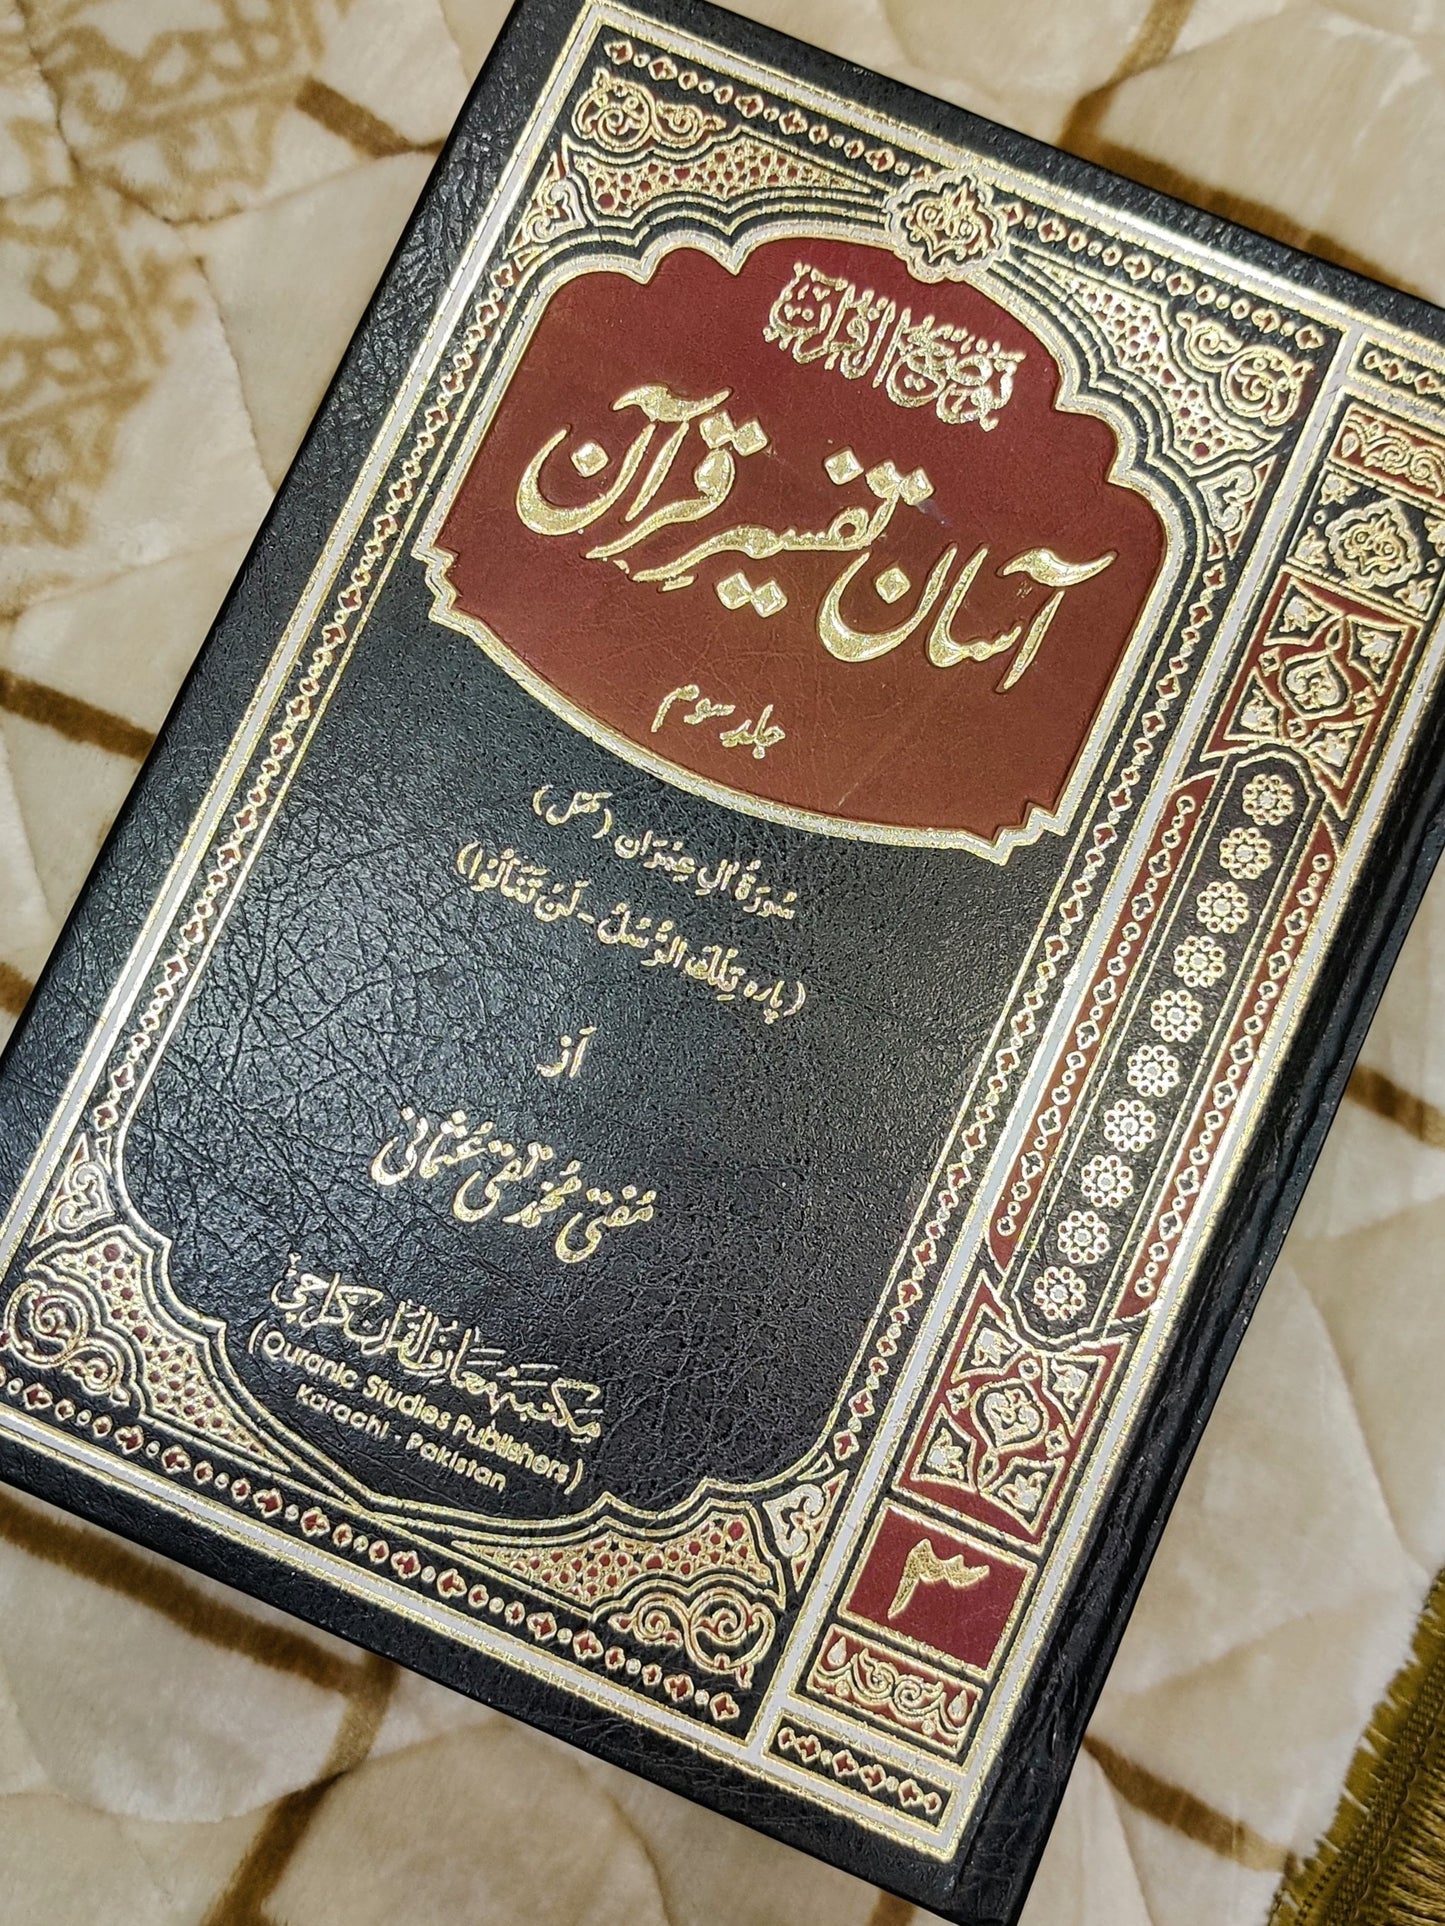 توضیح القرآن
آسان تفسیر قرآن
جلد سوم
سُورَةُ اٰلِ عِمْرَان (مکمّل)
(پارہ تِلْكَ الرُّسُلُ - لَنْ تَنَالُوا)
اَز
مُفتی مُحمّد تقی عُثمانی
مکتبہ معارف القرآن کراچی
(Quranic Studies Publishers)
Karachi - Pakistan
۳